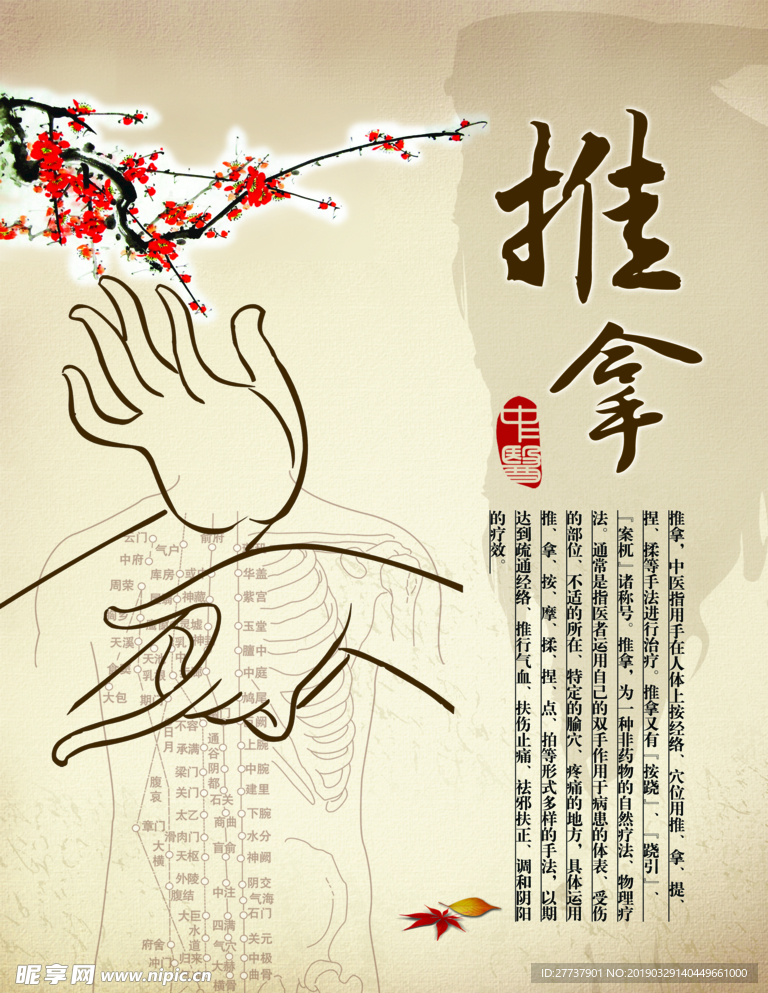 推拿
中醫
推拿，中医指用手在人体上按经络、穴位用推、拿、提、
捏、揉等手法进行治疗。推拿又有『按跷』、『跷引』、
『案杌』诸称号。推拿，为一种非药物的自然疗法、物理疗
法。通常是指医者运用自己的双手作用于病患的体表、受伤
的部位、不适的所在、特定的腧穴、疼痛的地方，具体运用
推、拿、按、摩、揉、捏、点、拍等形式多样的手法，以期
达到疏通经络、推行气血、扶伤止痛、祛邪扶正、调和阴阳
的疗效。
云门
气户
俞府
中府
库房
华盖
周荣
神藏
紫宫
玉堂
天溪
天池
膻中
中庭
大包
鸠尾
不容
日月
承满
通谷
上脘
梁门
阴都
中脘
腹哀
关门
石关
建里
太乙
商曲
下脘
章门
滑肉门
水分
大横
天枢
肓俞
神阙
外陵
阴交
腹结
中注
气海
大巨
石门
水道
四满
府舍
气穴
关元
冲门
归来
大赫
中极
横骨
曲骨
昵享网 www.nipic.cn
ID:27737901 NO:20190329140449661000